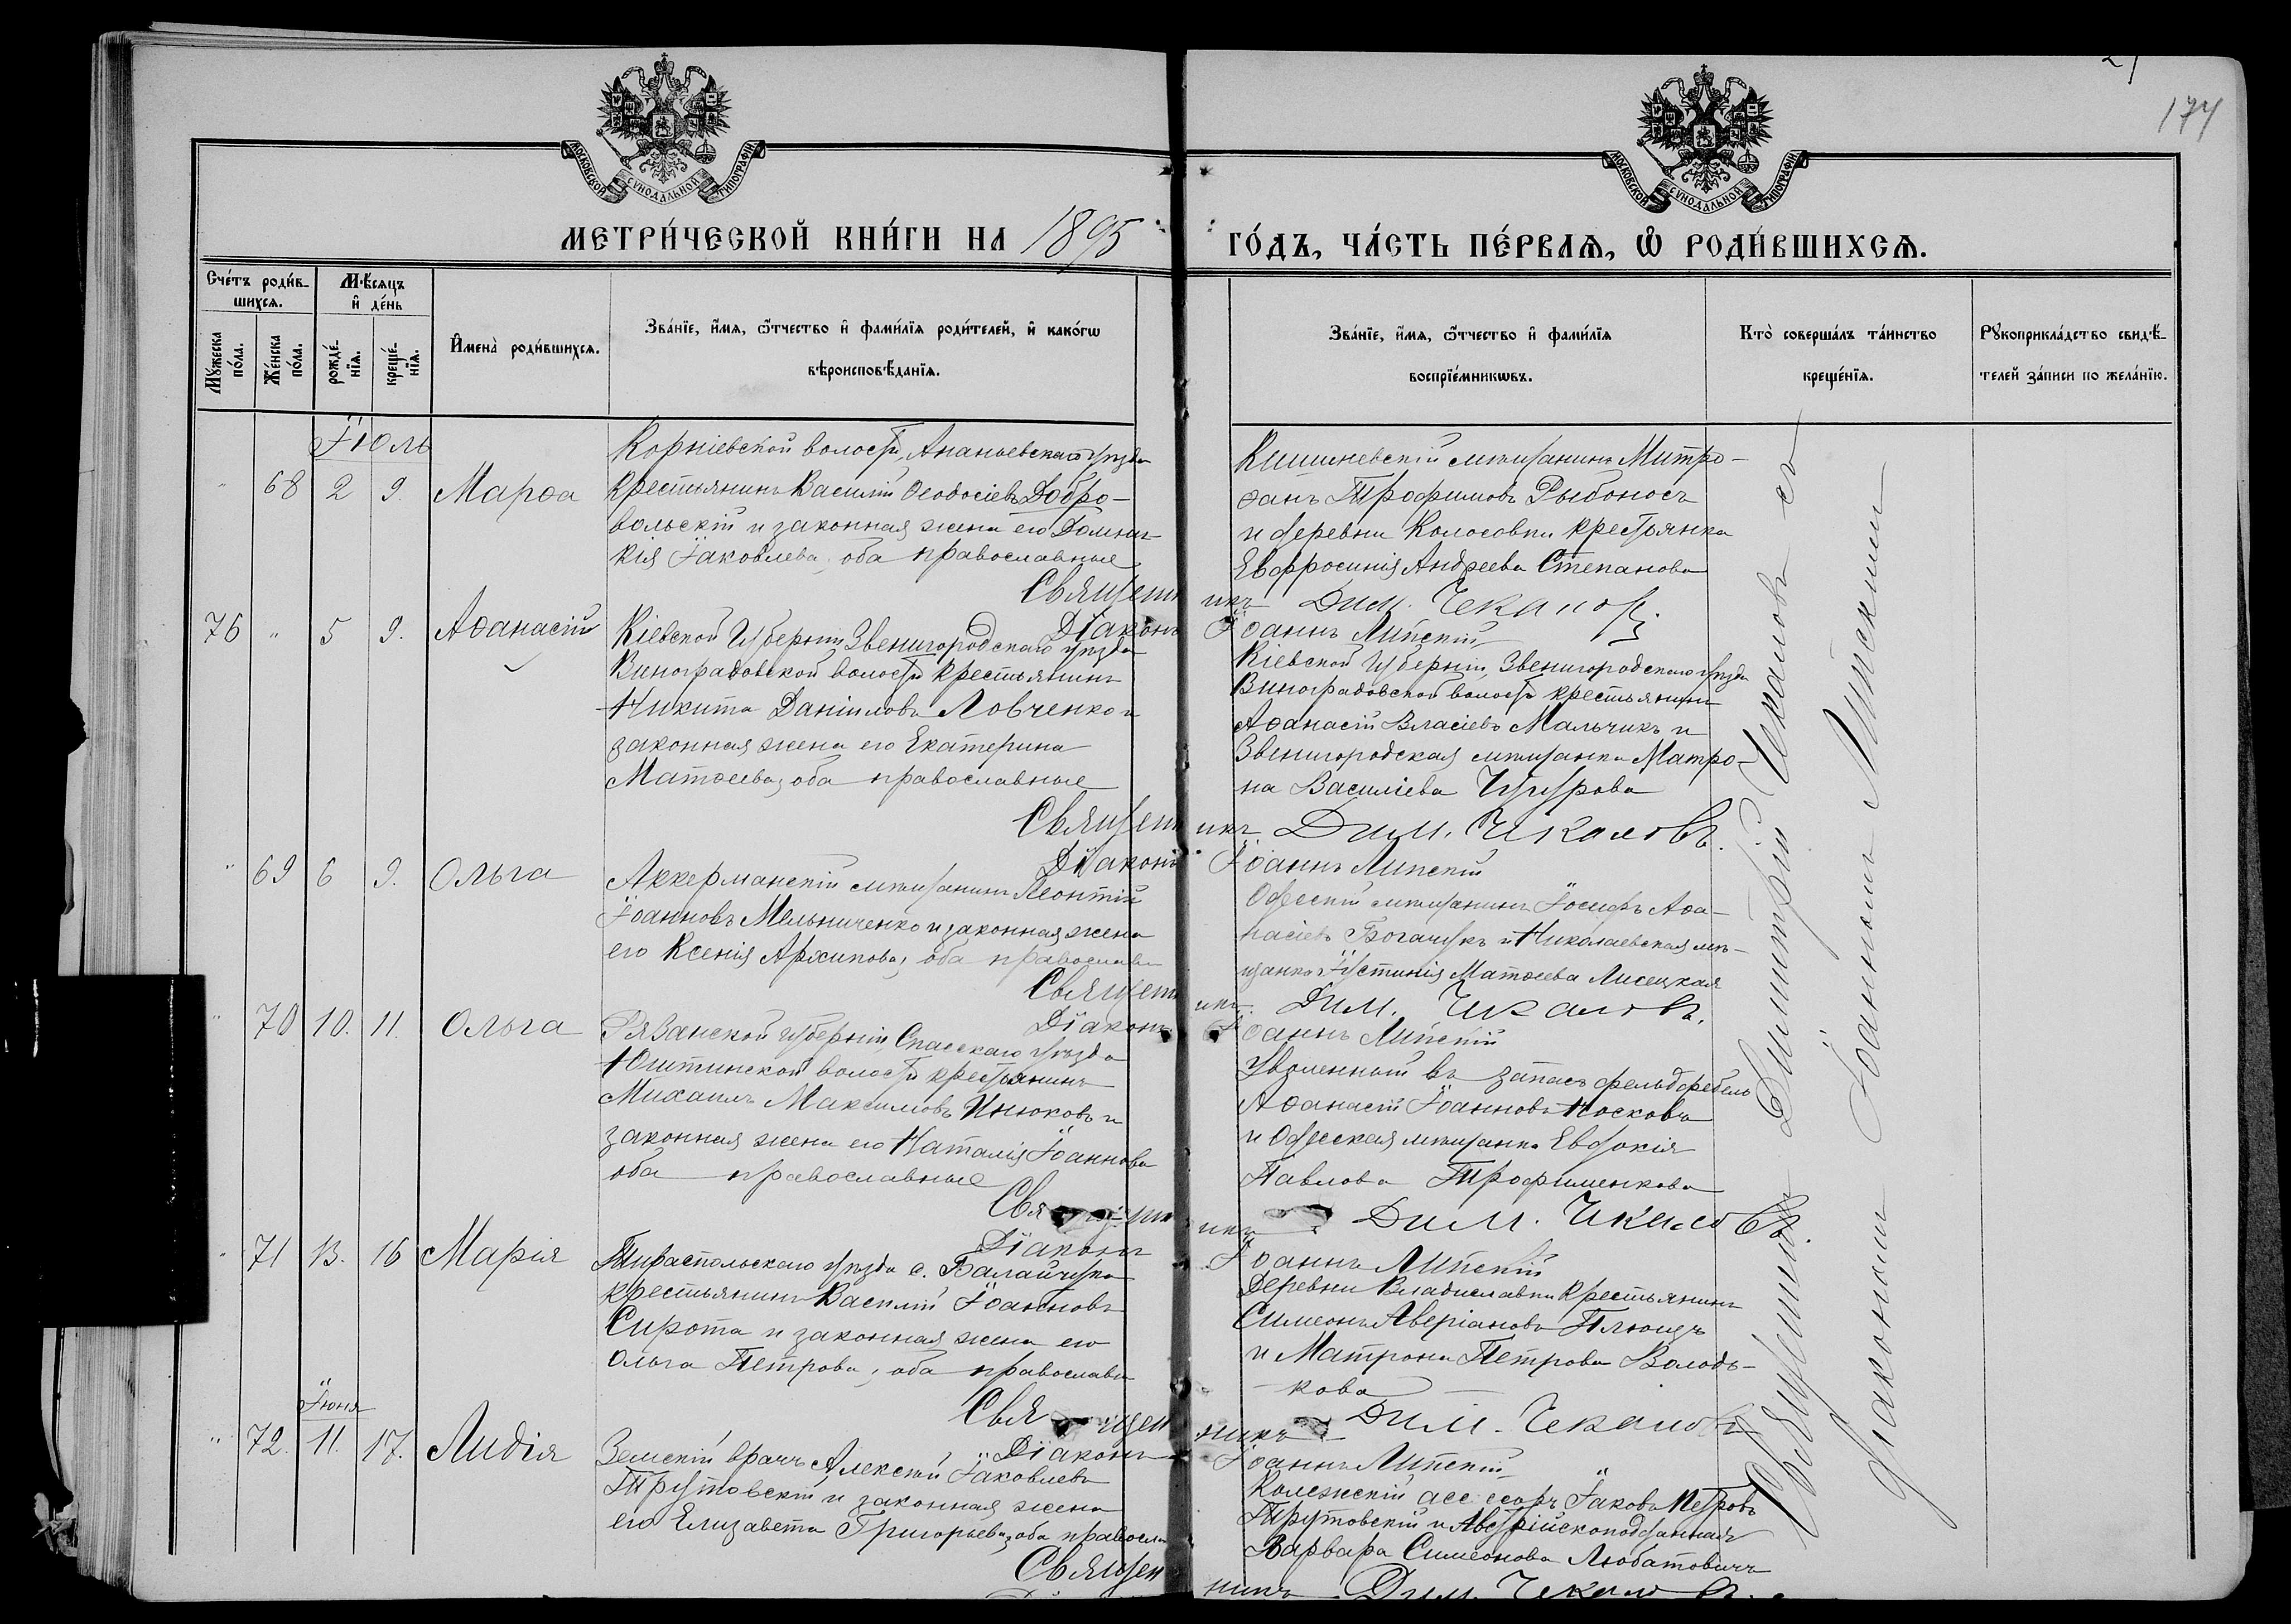 174
МОСКОВСКОЙ СѴНОДАЛЬНОЙ ТИПОГРАФІИ
МОСКОВСКОЙ СѴНОДАЛЬНОЙ ТИПОГРАФІИ
МЕТРИ́ЧЕСКОЙ КНИ́ГИ НА 1895 ГО́ДЪ, ЧА́СТЬ ПЕ́РВАѦ, Ѡ҆ РОДИ́ВШИХСѦ.
Сче́тъ роди́в-
шихсѧ.
Мꙋ́жеска по́ла.
Же́нска по́ла.
Мѣ́сѧцъ
и҆ де́нь
рожде́-
нїѧ.
креще́-
нїѧ.
И҆мена̀ роди́вшихсѧ.
Зва́нїе, и҆́мѧ, ѻ҆́тчество и҆ фами́лїѧ роди́телей, и҆ како́гѡ
вѣроисповѣ́данїѧ.
Зва́нїе, и҆́мѧ, ѻ҆́тчество и҆ фами́лїѧ
воспрїе́мникѡвъ.
Кто̀ соверша́лъ та́инство
креще́нїѧ.
Рꙋкоприкла́дство свидѣ́-
телей за́писи по жела́нїю.
Іюль
" 68 2 9. Марѳа
Корніевской волости, Ананьевскаго уѣзда
крестьянинъ Василій Ѳеодосіевъ Добро-
вольскій и законная жена его Домни-
кія Іаковлева, оба православные
Кишиневскій мѣщанинъ Митро-
фанъ Трофимовъ Рыбоносъ
и деревни Колосовки крестьянка
Евфросинія Андреева Степанова
Священникъ Дим. Чекаловъ.
Діаконъ Іоаннъ Липскій
76 " 5 9. Аѳанасій
Кіевской Губерніи Звенигородскаго уѣзда
Виноградовской волости крестьянинъ
Никита Даніиловъ Ловченко и
законная жена его Екатерина
Матѳеева, оба православные
Кіевской Губерніи, Звенигородскаго уѣзда
Виноградовской волости крестьянинъ
Аѳанасій Власіевъ Мальчикъ и
Звенигородская мѣщанка Матро-
на Василіева
Священникъ Дим. Чекаловъ.
Діаконъ Іоаннъ Липскій
" 69 6 9. Ольга
Аккерманскій мѣщанинъ Леонтій
Іоанновъ Мельниченко и законная жена
его Ксенія Архипова, оба православн
Одесскій мѣщанинъ Іосифъ Аѳа-
насіевъ Богачукъ и Николаевская мѣ-
щанка Іустинія Матѳеева Лисецкая
Священникъ Дим. Чекаловъ.
Діаконъ Іоаннъ Липскій
" 70 10. 11. Ольга
Рязанской губерніи, Спасскаго уѣзда
волости крестьянинъ
Михаилъ Максимовъ Инюковъ и
законная жена его Наталія Іоаннова
оба православные
Уволенный въ запасъ фельдфебель
Аѳанасій Іоанновъ Носковъ
и Одесская мѣщанка Евдокія
Павлова Трофименкова
Священникъ Дим. Чекаловъ.
Діаконъ Іоаннъ Липскій
" 71 13. 16 Марія
Тираспольскаго уѣзда с. Балайчука
крестьянинъ Василій Іоанновъ
Сирота и законная жена его
Ольга Петрова, оба православн
Деревни Владиславки крестьянинъ
Симеонъ Аверіановъ Плющъ
и Матрона Петрова Володь-
кова
Священникъ Дим. Чекаловъ
Діаконъ Іоаннъ Липскій
Іюня
" 72. 11. 17. Лидія
Земскій врачъ Алексій Іаковлевъ
Трутовскій и законная жена
его Елизавета Григорьева, оба правосла
Колежскій ассесоръ Іаковъ Петровъ
Трутовскій и Австрійскоподданная
Варвара Симеонова Любатовичъ
Священникъ Дим. Чекаловъ.
Священникъ Димитрій Чекаловъ съ
діакономъ Іоанномъ Липскимъ